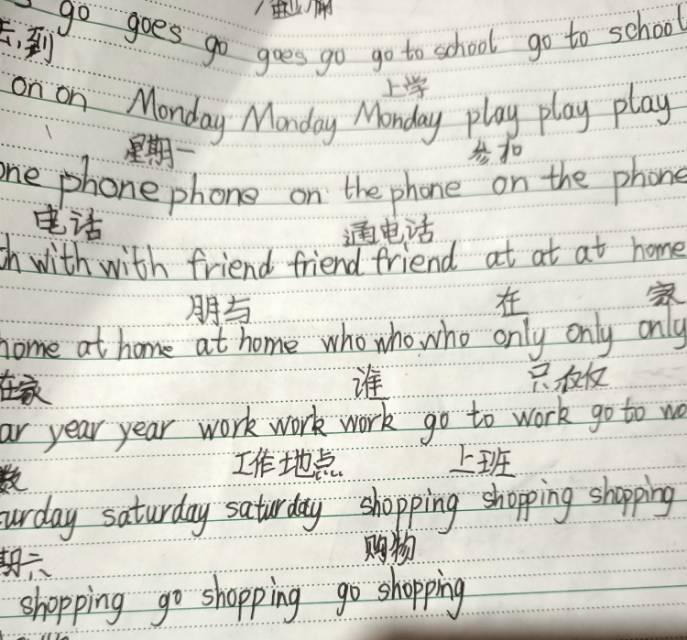 go goes go goes go go to school go to school
去,到 上学
on on Monday Monday Monday play play play
星期一 参加
phone phone on the phone on the phone
电话 通电话
with with friend friend friend at at at home
朋与 在 家
home at home at home who who who only only only
在家 谁 只.仅仅
year year work work work go to work go to
数 工作地点 上班
saturday saturday shopping shopping shopping
期六 购物
shopping go shopping go shopping